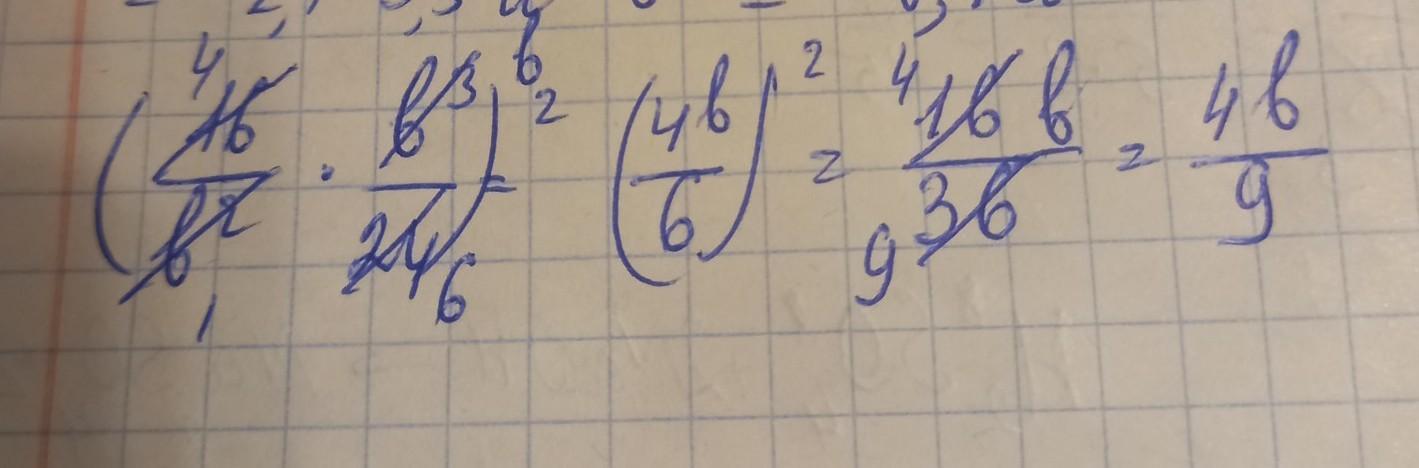 (16/b² · b³/24)² = (4b/6)² = 16b/36 = 4b/9